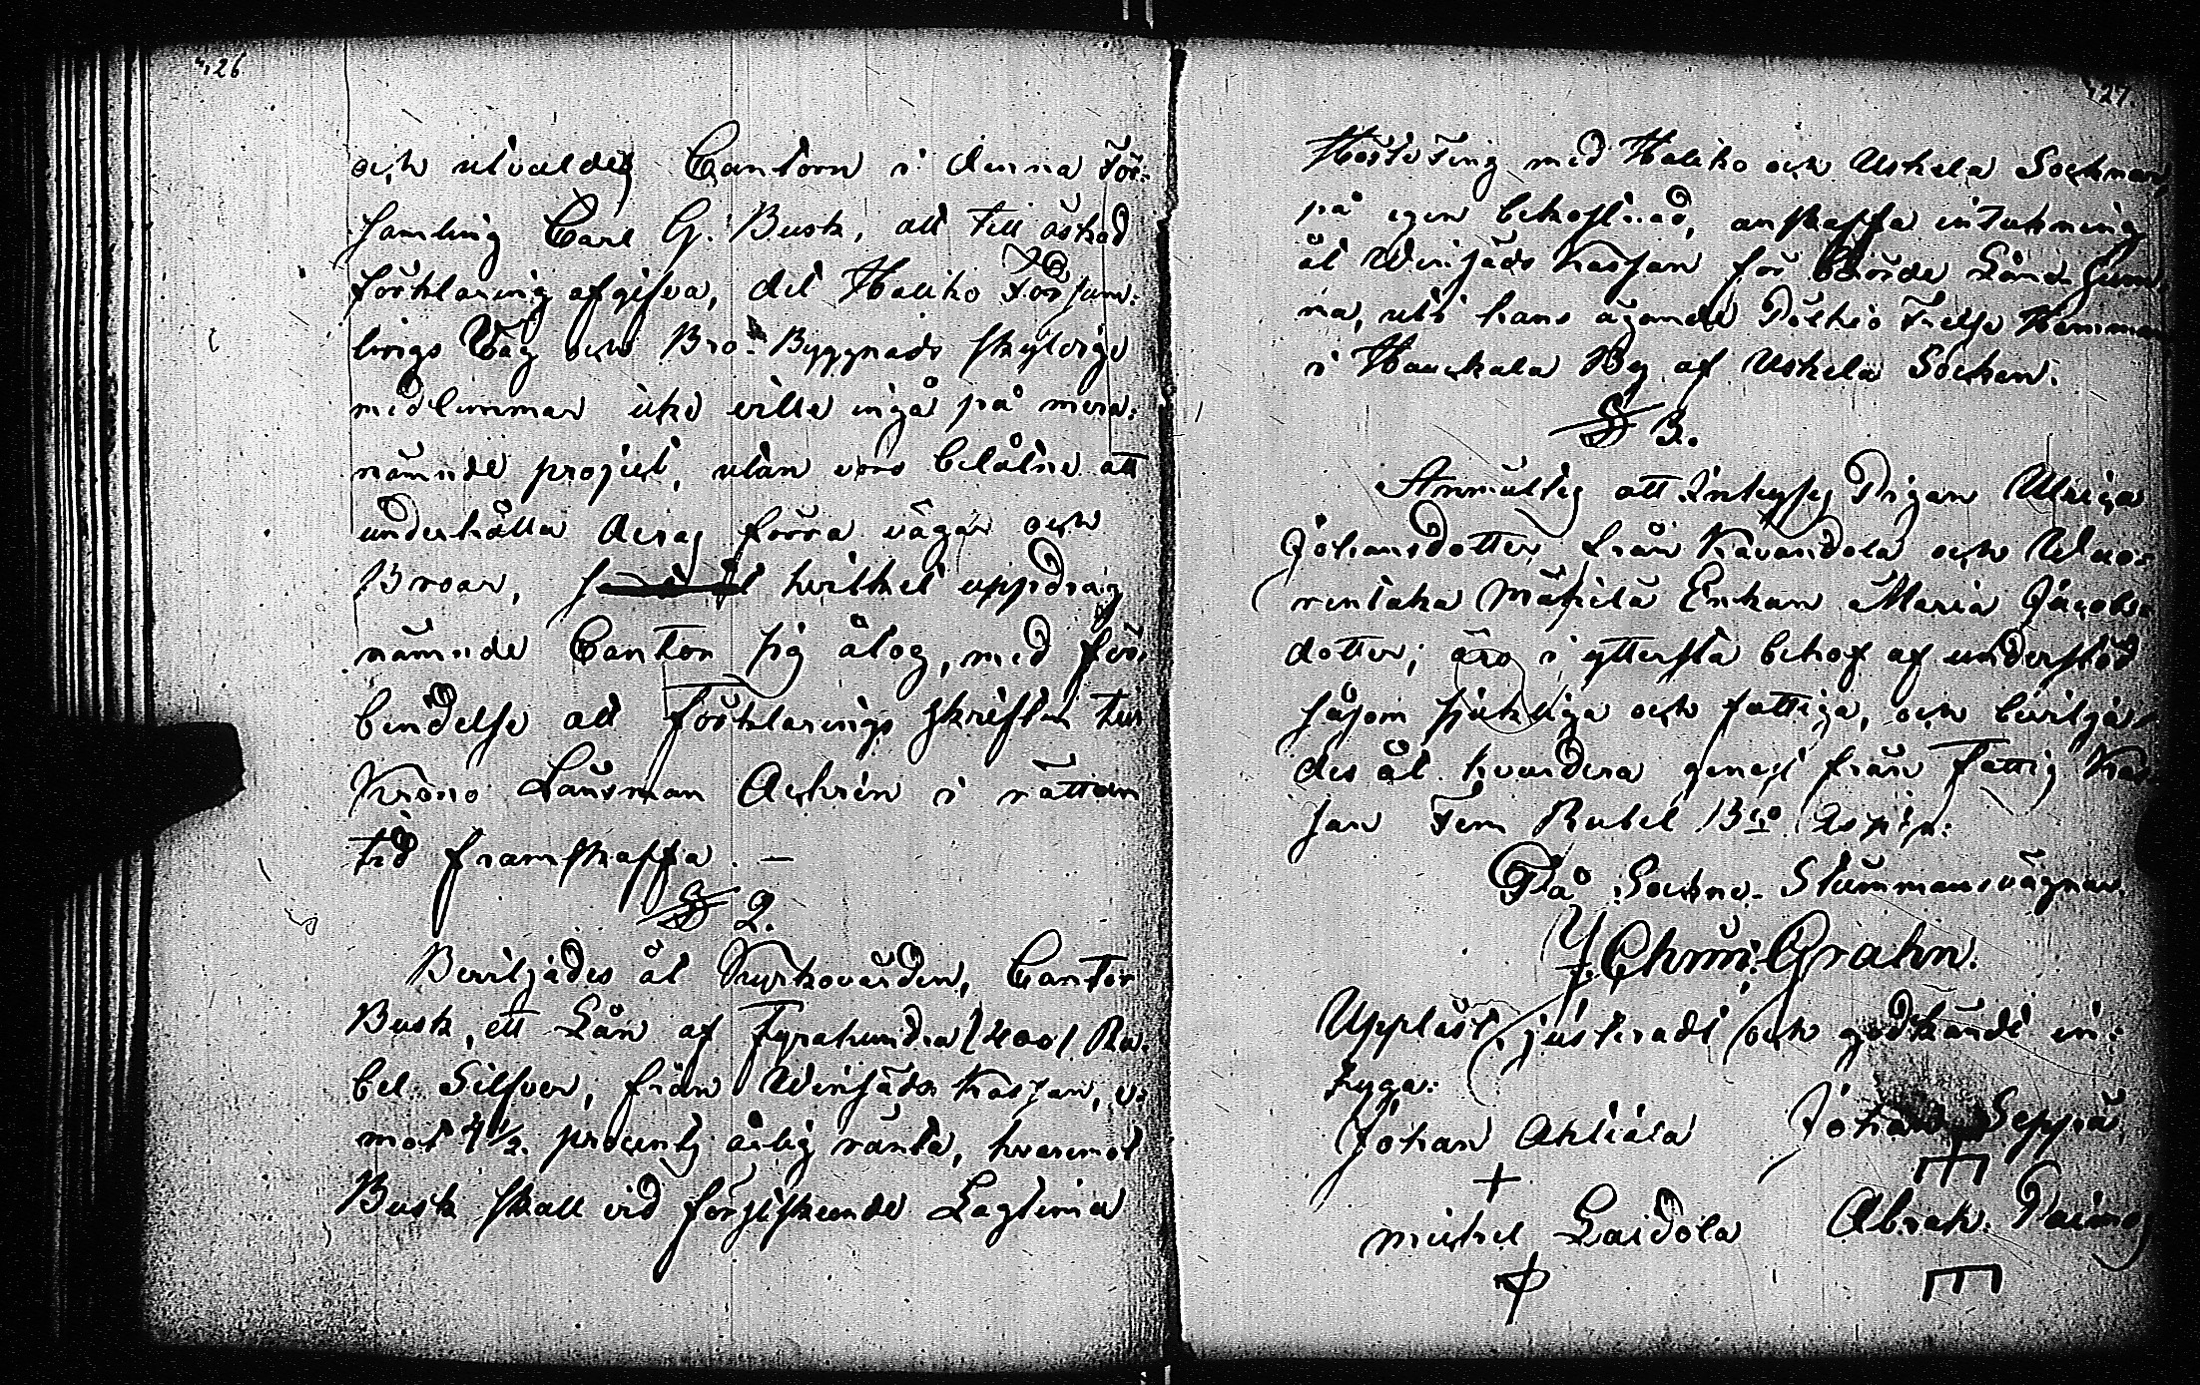 426
och utvaldes Cantorn i denna För-
samling Carl G. Busk, att till äskad
förklaring afgifva, det Haliko Försam-
lings Väg och Bro-Byggnads skyldige
medlemmar icke ville ingå på mera-
nämnde project, utan voro belåtne att
underhålla deras förra vägar och
Broar, hvilket uppdrag
nämnde Cantor sig åtog, med för-
bindelse att förklarings skriften till
Krono Länsman Achrén i rättan
tid framskaffa. —
§ 2.
Beviljades åt Kyrkovärden, Cantor
Busk, ett Lån af Fyrahundra (400) Ru-
bel Silfver, från Winsäds Kassan, e-
mot 4 1/2. procents årlig ränta, hvaremot
Busk skall vid förstiskeende Lagtima
427.
Höste Ting med Haliko och Uskela Socknar,
på egen bekostnad, anskaffa inteckning
åt Winsäds Kassan för berörde Låne Sum-
ma, uti hans ägande Pölkiö Frelse Hemman
i Hauckala By af Uskela Sochen.
§ 3.
Anmältes att Inhyses Pigan Ulrica
Johansdotter från Kavandola och Wuo-
rentaka Mäkilä Enkan Maria Jacobs-
dotter, äro i yttersta behof af understöd
såsom sjukliga och fattiga, och beviljа-
des åt hvardera genast från Fattig Kas-
san Fem Rubel B:co Assign:
På Sockne-Stämmans vägnar.
Chr:n: Grahn.
Uppläst, justeradt och godkändt in-
tyga:
Johan Ahliala Johan Seppä
Michel Laidola Abrah. Paimo